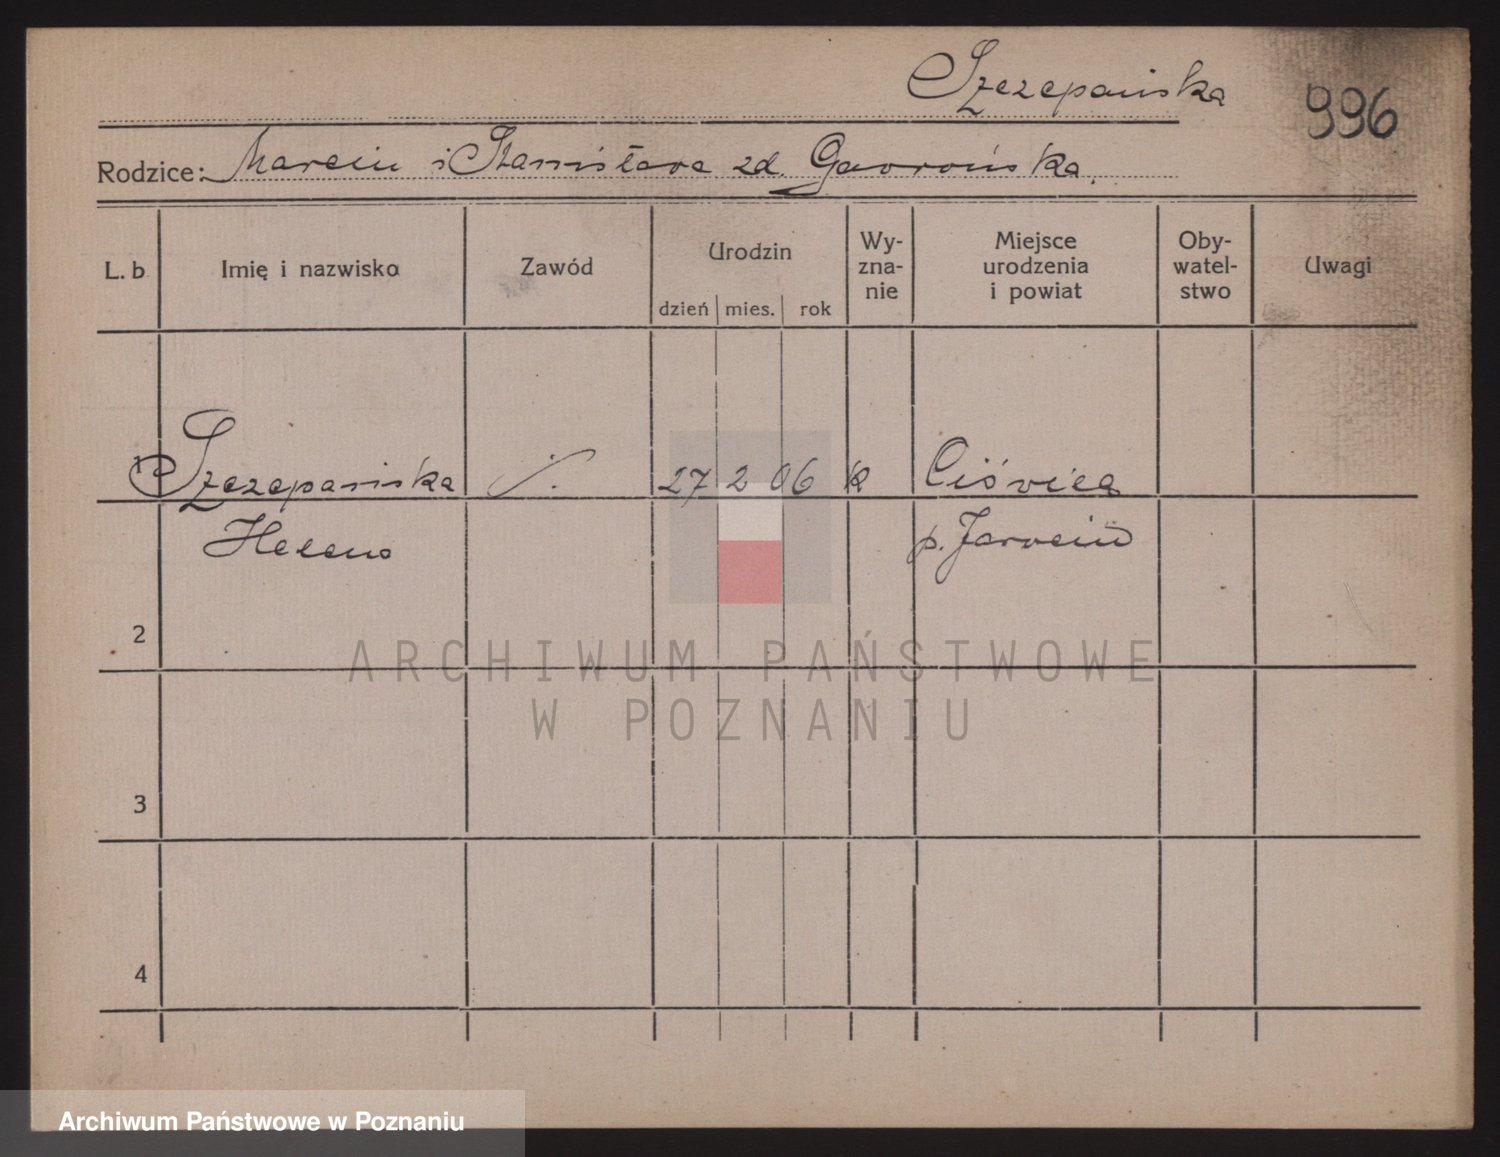 Szczepańska
996
Rodzice: Marcin i Stanisława zd. Gawrońska.
L. b
Imię i nazwisko
Zawód
Urodzin
dzień mies. rok
Wy-
zna-
nie
Miejsce
urodzenia
i powiat
Oby-
watel-
stwo
Uwagi
1 Szczepańska 27 2 06 k Ciświca
Helena p. Jarocin
2
3
4
ARCHIWUM PAŃSTWOWE
W POZNANIU
Archiwum Państwowe w Poznaniu